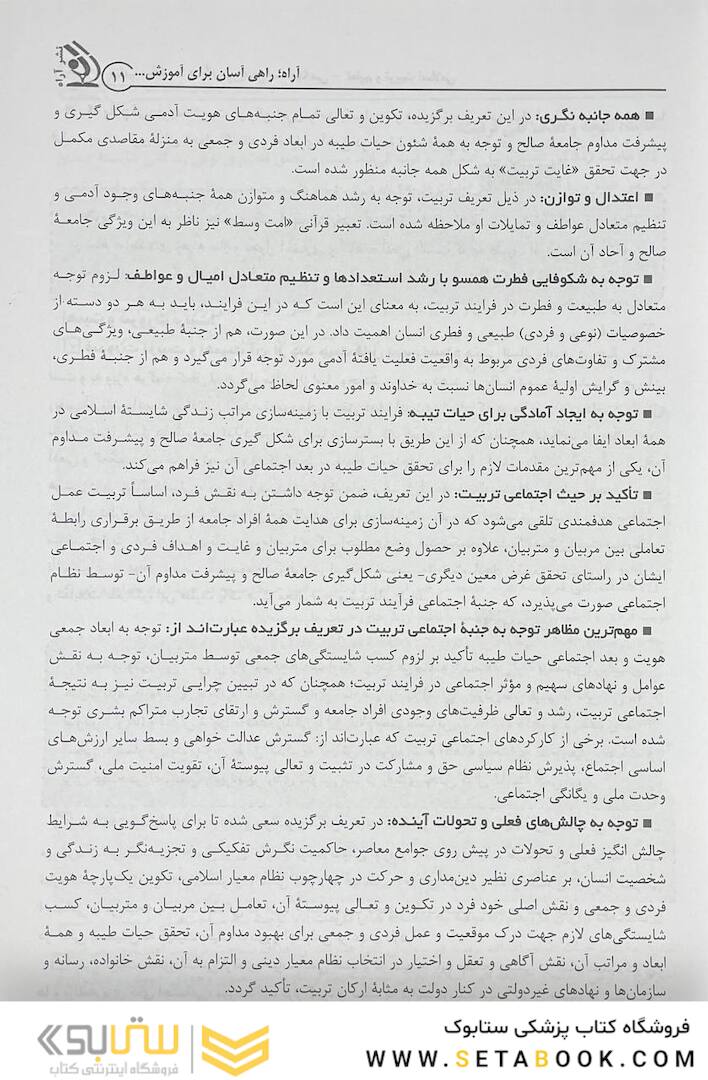 آراه؛ راهی آسان برای آموزش...
۱۱
نشر آراه
■ همه جانبه نگری: در این تعریف برگزیده، تکوین و تعالی تمام جنبه‌های هویت آدمی شکل گیری و
پیشرفت مداوم جامعهٔ صالح و توجه به همهٔ شئون حیات طیبه در ابعاد فردی و جمعی به منزلهٔ مقاصدی مکمل
در جهت تحقق «غایت تربیت» به شکل همه جانبه منظور شده است.
■ اعتدال و توازن: در ذیل تعریف تربیت، توجه به رشد هماهنگ و متوازن همهٔ جنبه‌های وجود آدمی و
تنظیم متعادل عواطف و تمایلات او ملاحظه شده است. تعبیر قرآنی «امت وسط» نیز ناظر به این ویژگی جامعهٔ
صالح و آحاد آن است.
■ توجه به شکوفایی فطرت همسو با رشد استعدادها و تنظیم متعادل امیال و عواطف: لزوم توجه
متعادل به طبیعت و فطرت در فرایند تربیت، به معنای این است که در این فرایند، باید به هر دو دسته از
خصوصیات (نوعی و فردی) طبیعی و فطری انسان اهمیت داد. در این صورت، هم از جنبهٔ طبیعی، ویژگی‌های
مشترک و تفاوت‌های فردی مربوط به واقعیت فعلیت یافتهٔ آدمی مورد توجه قرار می‌گیرد و هم از جنبهٔ فطری،
بینش و گرایش اولیهٔ عموم انسان‌ها نسبت به خداوند و امور معنوی لحاظ می‌گردد.
■ توجه به ایجاد آمادگی برای حیات تیبه: فرایند تربیت با زمینه‌سازی مراتب زندگی شایستهٔ اسلامی در
همهٔ ابعاد ایفا می‌نماید، همچنان که از این طریق با بسترسازی برای شکل گیری جامعهٔ صالح و پیشرفت مداوم
آن، یکی از مهم‌ترین مقدمات لازم را برای تحقق حیات طیبه در بعد اجتماعی آن نیز فراهم می‌کند.
■ تأکید بر حیث اجتماعی تربیت: در این تعریف، ضمن توجه داشتن به نقش فرد، اساساً تربیت عمل
اجتماعی هدفمندی تلقی می‌شود که در آن زمینه‌سازی برای هدایت همهٔ افراد جامعه از طریق برقراری رابطهٔ
تعاملی بین مربیان و متربیان، علاوه بر حصول وضع مطلوب برای متربیان و غایت و اهداف فردی و اجتماعی
ایشان در راستای تحقق غرض معین دیگری- یعنی شکل‌گیری جامعهٔ صالح و پیشرفت مداوم آن- توسط نظام
اجتماعی صورت می‌پذیرد، که جنبهٔ اجتماعی فرآیند تربیت به شمار می‌آید.
■ مهم‌ترین مظاهر توجه به جنبهٔ اجتماعی تربیت در تعریف برگزیده عبارت‌اند از: توجه به ابعاد جمعی
هویت و بعد اجتماعی حیات طیبه تأکید بر لزوم کسب شایستگی‌های جمعی توسط متربیان، توجه به نقش
عوامل و نهادهای سهیم و مؤثر اجتماعی در فرایند تربیت؛ همچنان که در تبیین چرایی تربیت نیز به نتیجهٔ
اجتماعی تربیت، رشد و تعالی ظرفیت‌های وجودی افراد جامعه و گسترش و ارتقای تجارب متراکم بشری توجه
شده است. برخی از کارکردهای اجتماعی تربیت که عبارت‌اند از: گسترش عدالت خواهی و بسط سایر ارزش‌های
اساسی اجتماع، پذیرش نظام سیاسی حق و مشارکت در تثبیت و تعالی پیوستهٔ آن، تقویت امنیت ملی، گسترش
وحدت ملی و یگانگی اجتماعی.
■ توجه به چالش‌های فعلی و تحولات آینده: در تعریف برگزیده سعی شده تا برای پاسخ‌گویی به شرایط
چالش انگیز فعلی و تحولات در پیش روی جوامع معاصر، حاکمیت نگرش تفکیکی و تجزیه‌نگر به زندگی و
شخصیت انسان، بر عناصری نظیر دین‌مداری و حرکت در چهارچوب نظام معیار اسلامی، تکوین یک‌پارچهٔ هویت
فردی و جمعی و نقش اصلی خود فرد در تکوین و تعالی پیوستهٔ آن، تعامل بین مربیان و متربیان، کسب
شایستگی‌های لازم جهت درک موقعیت و عمل فردی و جمعی برای بهبود مداوم آن، تحقق حیات طیبه و همهٔ
ابعاد و مراتب آن، نقش آگاهی و تعقل و اختیار در انتخاب نظام معیار دینی و التزام به آن، نقش خانواده، رسانه و
سازمان‌ها و نهادهای غیردولتی در کنار دولت به مثابهٔ ارکان تربیت، تأکید گردد.
فروشگاه کتاب پزشکی ستابوک
WWW.SETABOOK.COM
ستابوک
فروشگاه اینترنتی کتاب